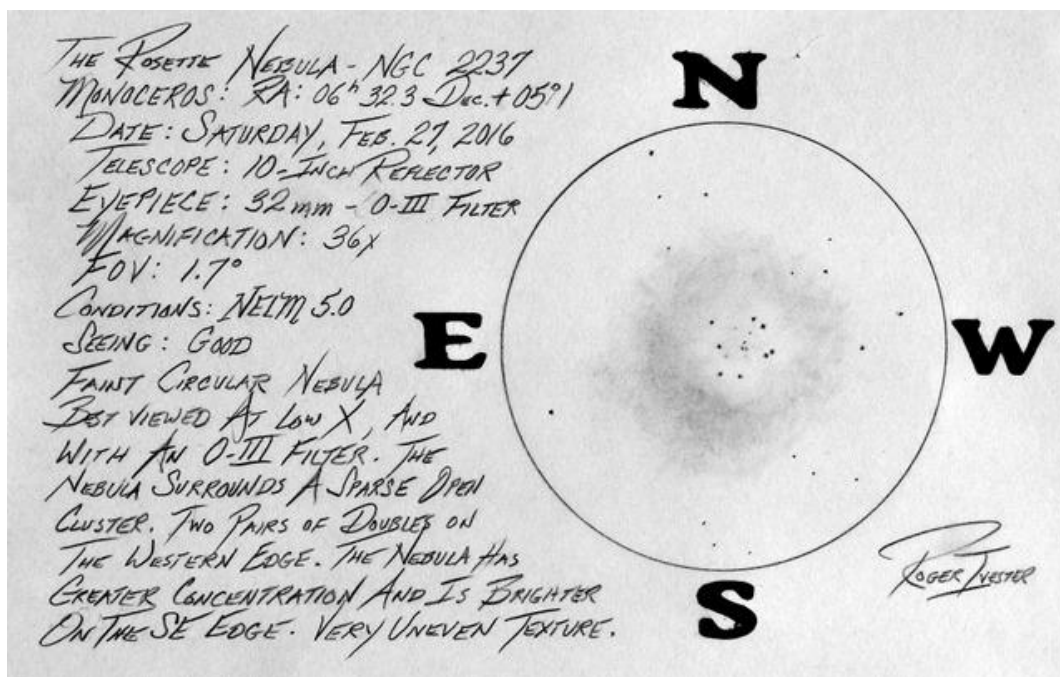 THE ROSETTE NEBULA - NGC 2237
MONOCEROS: RA: 06h 32.3 DEC. +05°1
DATE: SATURDAY, FEB. 27, 2016
TELESCOPE: 10-INCH REFLECTOR
EYEPIECE: 32mm - O-III FILTER
MAGNIFICATION: 36X
FOV: 1.7°
CONDITIONS: NELM 5.0
SEEING: GOOD
FAINT CIRCULAR NEBULA
BEST VIEWED AT LOW X, AND
WITH AN O-III FILTER. THE
NEBULA SURROUNDS A SPARSE OPEN
CLUSTER. TWO PAIRS OF DOUBLES ON
THE WESTERN EDGE. THE NEBULA HAS
GREATER CONCENTRATION AND IS BRIGHTER
ON THE SE EDGE. VERY UNEVEN TEXTURE.
N
E
W
S
ROGER IVESTER